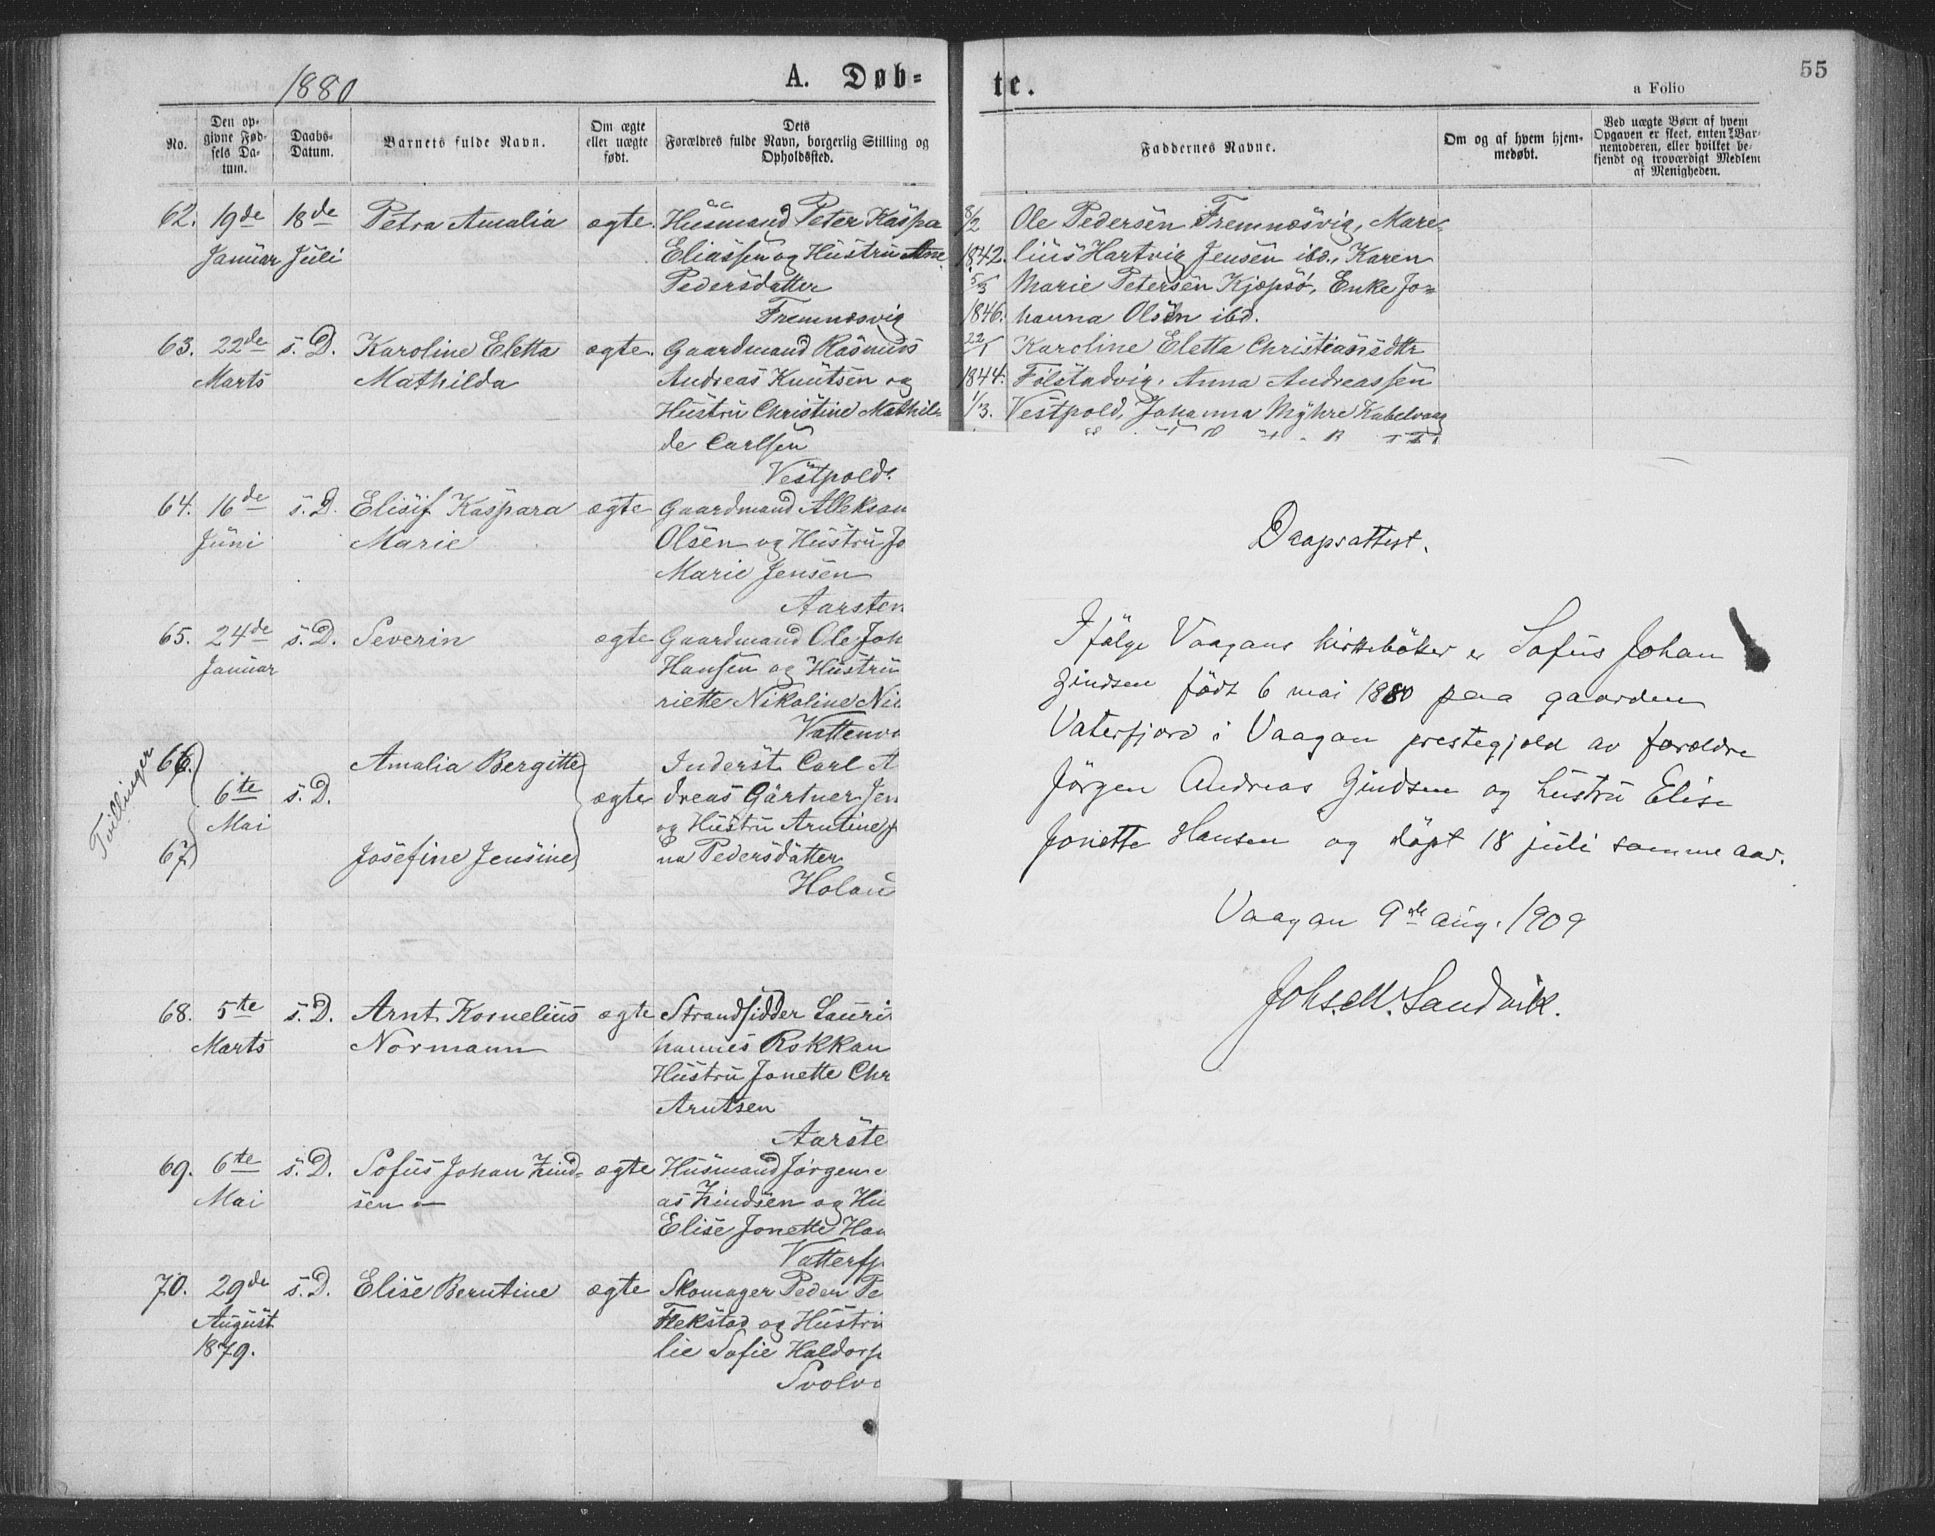 1880
A. Døb=
No.
Den op-
givne Fød-
sels Da-
tum.
Daabs-
Datum.
Barnets fulde Navn.
Om ægte
eller uægte
født.
Dets
Forældres fulde Navn, borgerlig Stilling og
Opholdssted.
62. 19de 18de Petra Amalia ægte. Husmand Peter Kaspa
Januar Juli Eliassen og Hustru Ane
Pedersdatter
Fremnæsvig
63. 22de s. D. Karoline Eletta ægte. Gaardmand Rasmus
Marts Mathilda Andreas Knutsen og
Hustru Christine Mathil=
de Carlsen
Vestpold.
64. 16de s. D. Elisif Kaspara ægte Gaardmand Alleksan
Juni Marie Olsen og Hustru Jo
Marie Jensen
Aarsten
65. 24de s. D. Severin ægte Gaardmand Ole Joh
Januar Hansen og Hustru
riette Nikoline Nie
Vattenv
Tvillinger
66. Amalia Bergitte Inderst Carl A
6te s. D. ægte dreas Gärtner Jen
Mai og Hustru Arntine
67. Josefine Jensine na Pedersdatter
Holan
68. 5te s. D. Arnt Kornelius ægte Strandsidder Lauri
Marts Normann hannes Rokkan
Hustru Jonette Chr
Arntsen
Aarste
69. 6te s. D. Sofus Johan Zind= ægte Husmand Jørgen
Mai sen — as Zindsen og Hu
Elise Jonette Han
Vatterfj
70. 29de s. D. Elise Berntine ægte Skomager Peder Pe
August Flekstad og Hustru
1879. lie Sofie Haldors
Svolv
te.
55
a Folio
Faddernes Navne.
Om og af hvem hjem-
medøbt.
Ved uægte Børn af hvem
Opgaven er skeet, enten af Bar-
nemoderen, eller hvilket be-
kjendt og troværdigt Medlem
af Menigheden.
8/2 Ole Pedersen Fremnæsvig, Mare=
1842. lius Hartvig Jensen ibd., Karen
5/3 Marie Petersen Kjæpsø, Enke Jo=
1846. hanna Olsen ibd.
22/1 Karoline Eletta Christiansdttr
1844. Følstadvig, Anna Andreassen
1/3. Vestpold, Johanna Myhre Kabelvaag
Daapsattest.
Ifølge Vaagans kirkebøker er Sofus Johan
Zindsen født 6 mai 1880 paa gaarden
Vaterfjord i Vaagan prestegjeld av forældre
Jørgen Andreas Zindsen og hustru Elise
Jonette Hansen og døpt 18 juli samme aar.
Vaagan 9de aug. 1909
Johs. M. Sandvik.